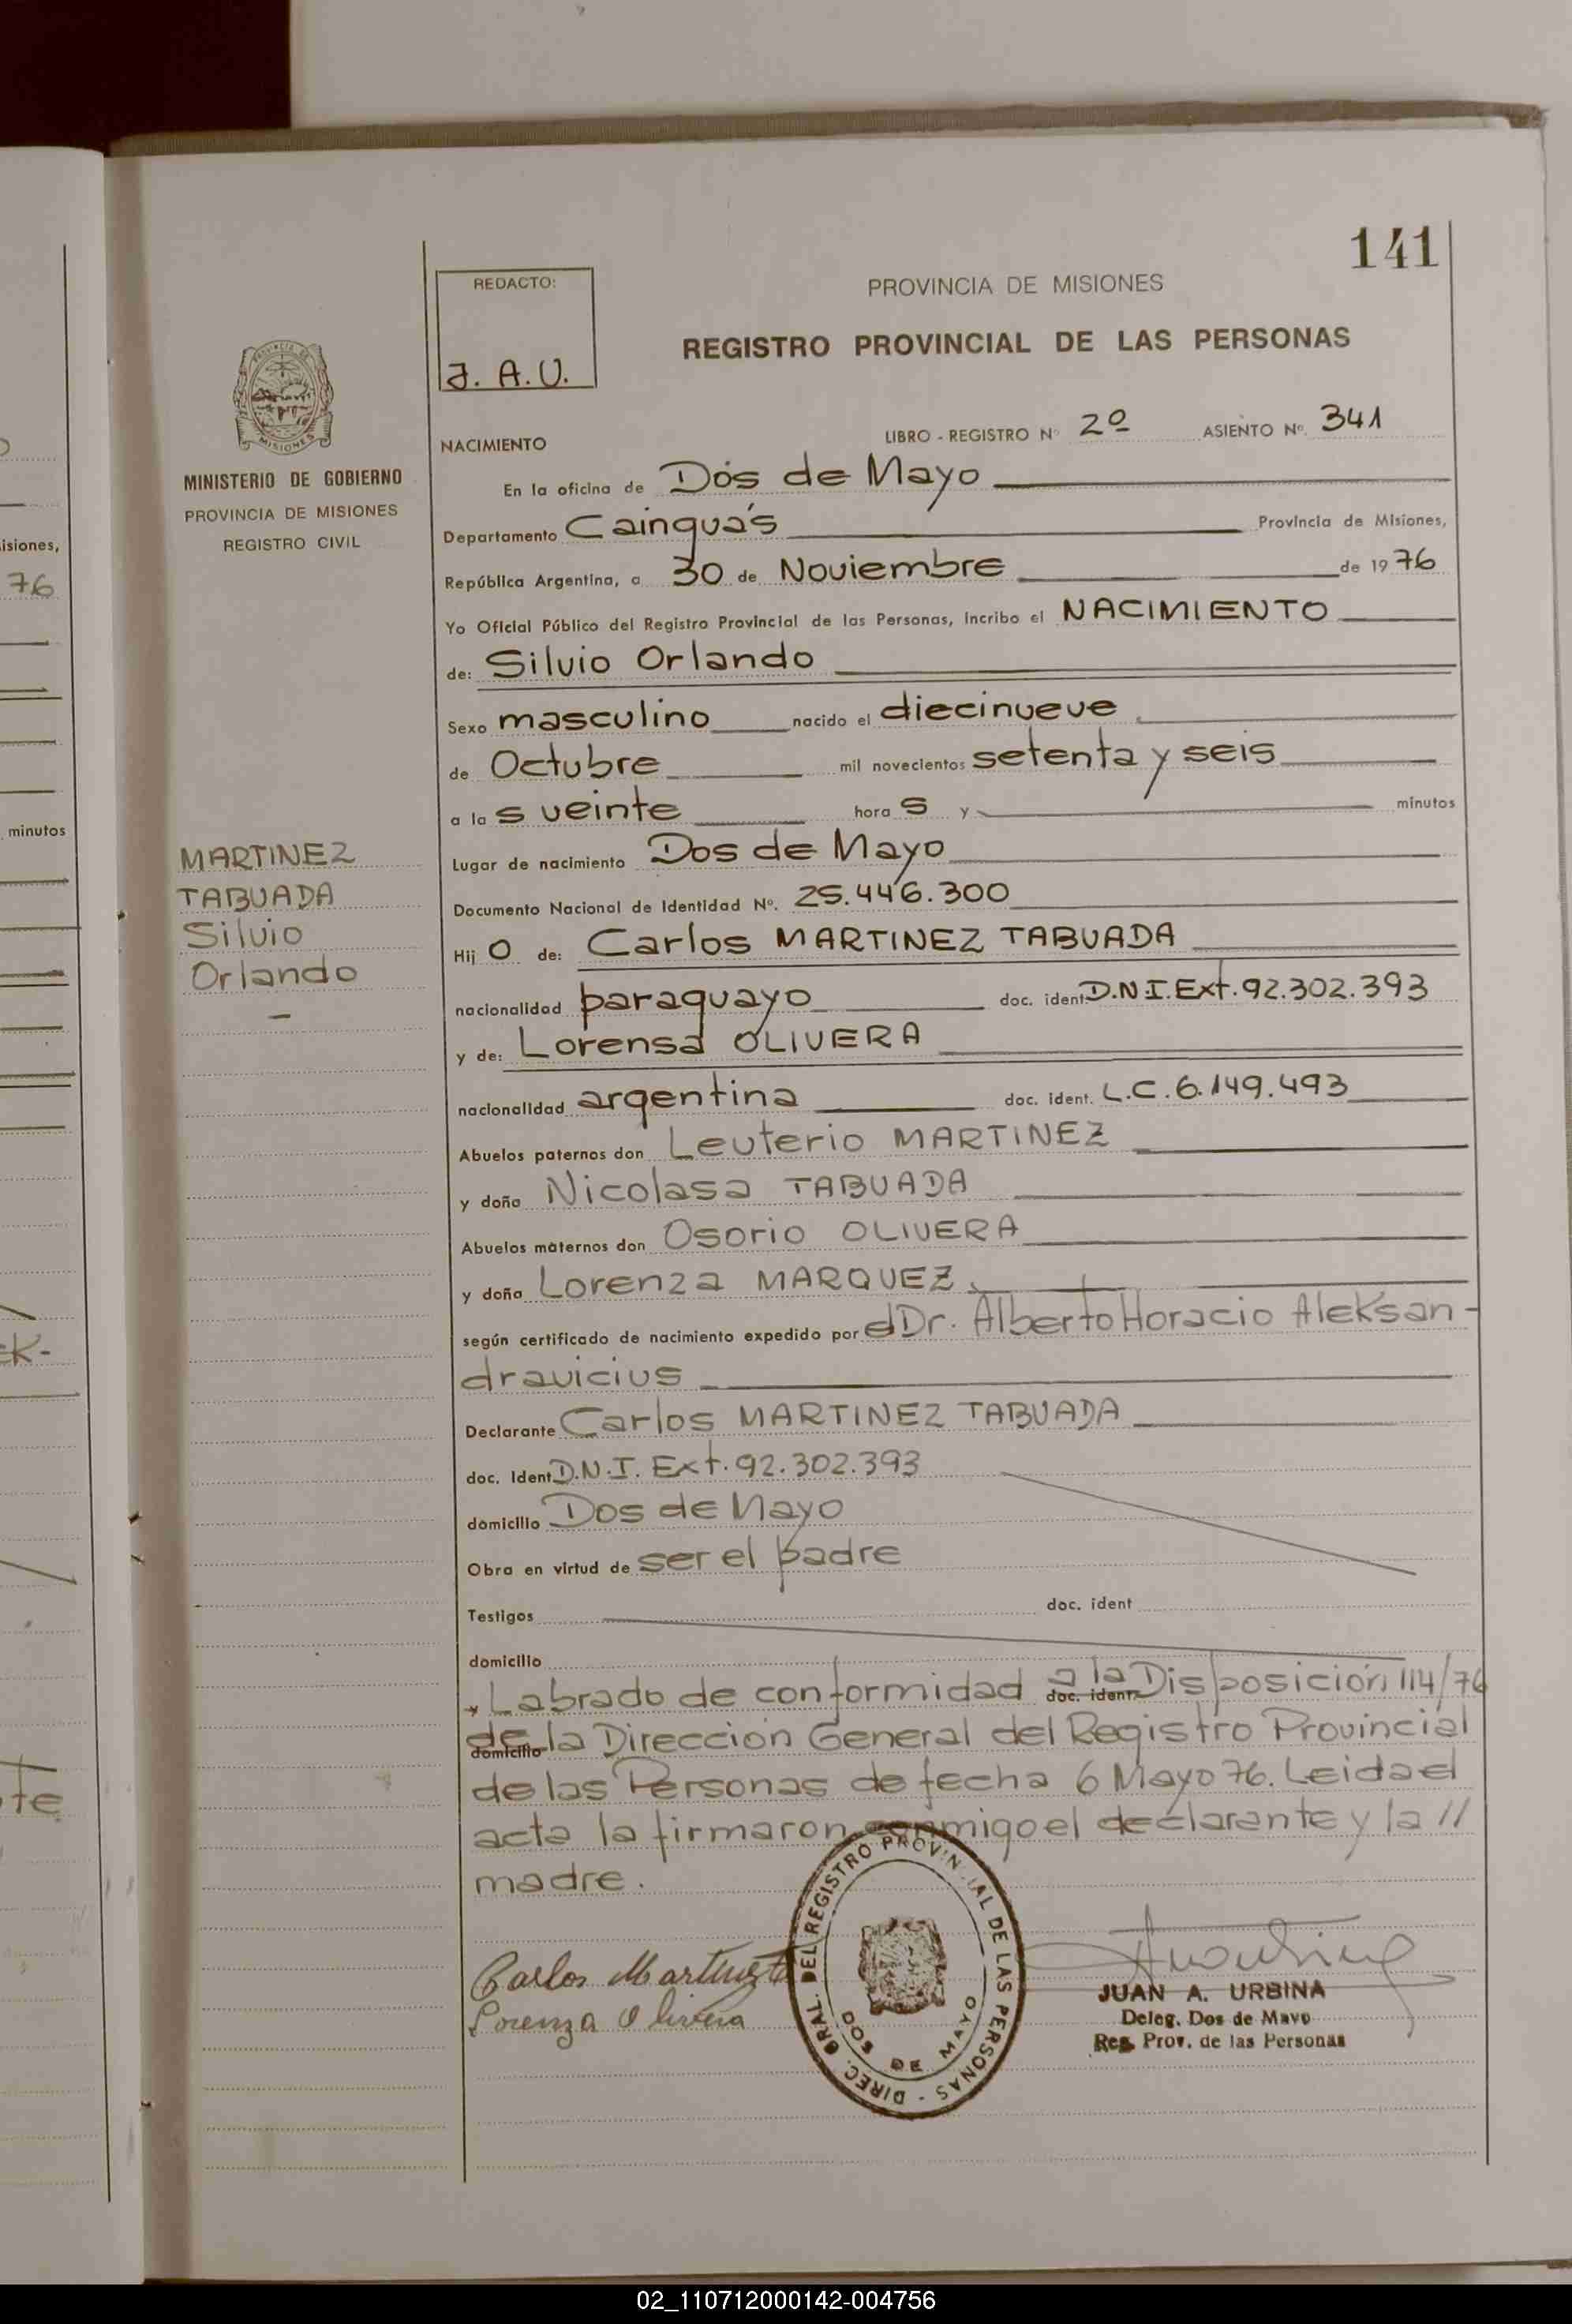 141
REDACTO:
J. A. U.
PROVINCIA DE MISIONES
REGISTRO PROVINCIAL DE LAS PERSONAS
PROVINCIA DE
MISIONES
MINISTERIO DE GOBIERNO
PROVINCIA DE MISIONES
REGISTRO CIVIL
MARTINEZ
TABUADA
Silvio
Orlando
-
NACIMIENTO LIBRO - REGISTRO Nº 2º ASIENTO Nº. 341
En la oficina de Dós de Mayo
Departamento Cainguás Provincia de Misiones,
República Argentina, a 30 de Noviembre de 1976
Yo Oficial Público del Registro Provincial de las Personas, Incribo el NACIMIENTO
de: Silvio Orlando
Sexo masculino nacido el diecinueve
de Octubre mil novecientos setenta y seis
a las veinte horas y minutos
Lugar de nacimiento Dos de Mayo
Documento Nacional de Identidad Nº. 25.446.300
Hijo de: Carlos MARTINEZ TABUADA
nacionalidad paraguayo doc. ident D.N.I. Ext. 92.302.393
y de: Lorensa OLIVERA
nacionalidad argentina doc. ident. L.C. 6.149.493
Abuelos paternos don Leuterio MARTINEZ
y doña Nicolasa TABUADA
Abuelos maternos don Osorio OLIVERA
y doña Lorenza MARQUEZ
según certificado de nacimiento expedido por el Dr. Alberto Horacio Aleksan-
dravicius
Declarante Carlos MARTINEZ TABUADA
doc. Ident D.N.I. Ext. 92.302.393
domicilio Dos de Mayo
Obra en virtud de ser el padre
Testigos doc. ident
domicilio
y Labrado de conformidad a la doc. ident Disposición 114/76
domicilio de la Dirección General del Registro Provincial
de las Personas de fecha 6 Mayo 76. Leida el
acta la firmaron conmigo el declarante y la //
madre.
Carlos Martinez T
Lorenza Olivera
DIREC. GRAL. DEL REGISTRO PROVINCIAL DE LAS PERSONAS -
DOS DE MAYO
JUAN A. URBINA
Deleg. Dos de Mayo
Reg. Prov. de las Personas
isiones,
76
minutos
ek-
te
02_110712000142-004756